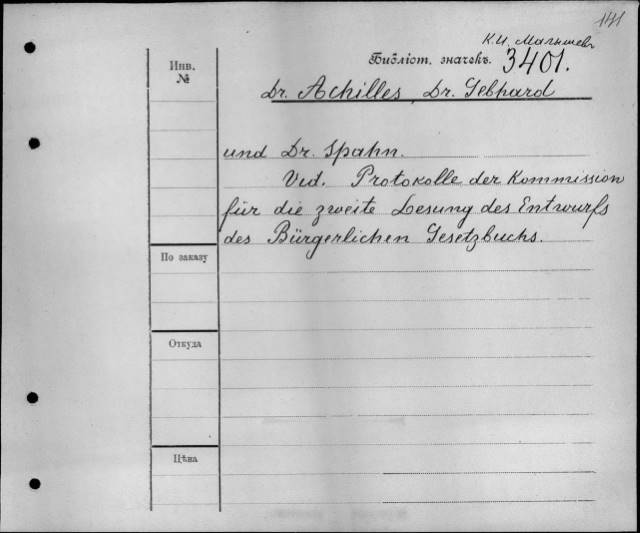 141
К. И. Малышевъ
Библіот. значекъ. 3401.
Инв.
№
Dr. Achilles, Dr. Gebhard
und Dr. Spahn.
Vid. Protokolle der Kommission
für die zweite Lesung des Entwurfs
des Bürgerlichen Gesetzbuchs.
По заказу
Откуда
Цѣна